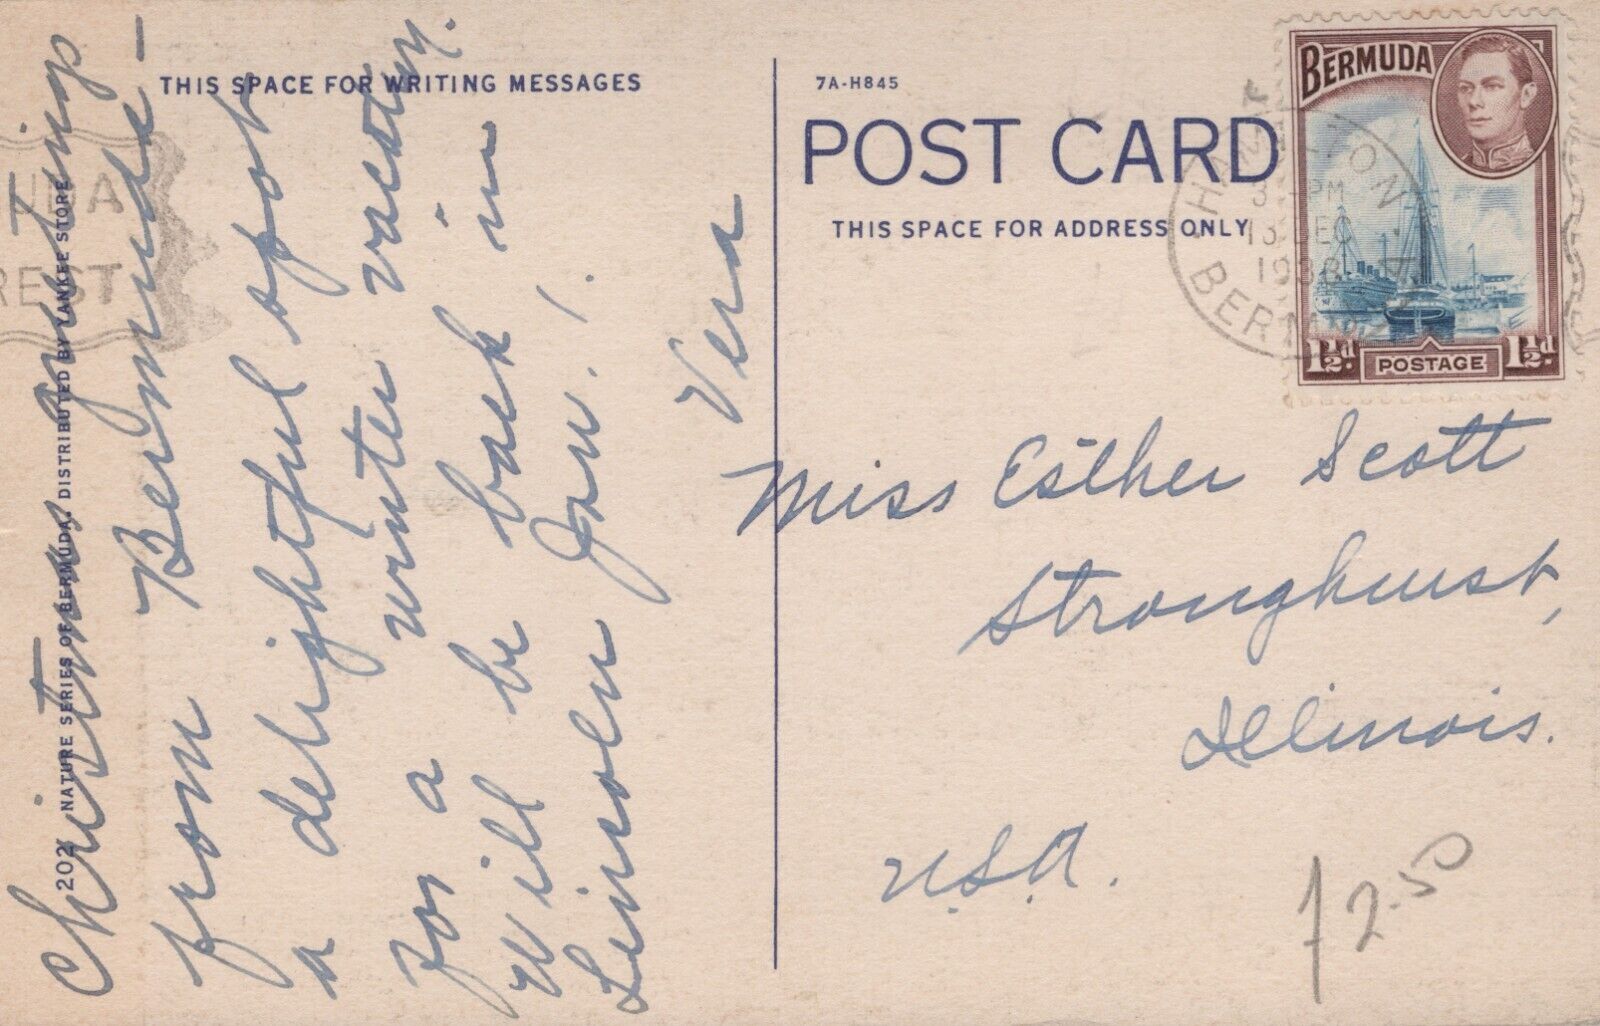 THIS SPACE FOR WRITING MESSAGES
202 NATURE SERIES OF BERMUDA. DISTRIBUTED BY YANKEE STORE
Christmas greetings
from Bermuda —
a delightful spot
for a winter vacation.
Will be back in
Lincoln Jan. 1.
Vera
7A-H845
POST CARD
THIS SPACE FOR ADDRESS ONLY
BERMUDA
1½d. POSTAGE 1½d
HAMILTON
PM
13 DEC
1938
BERMUDA
Miss Esther Scott
Stronghurst,
Illinois.
U.S.A.
2.50